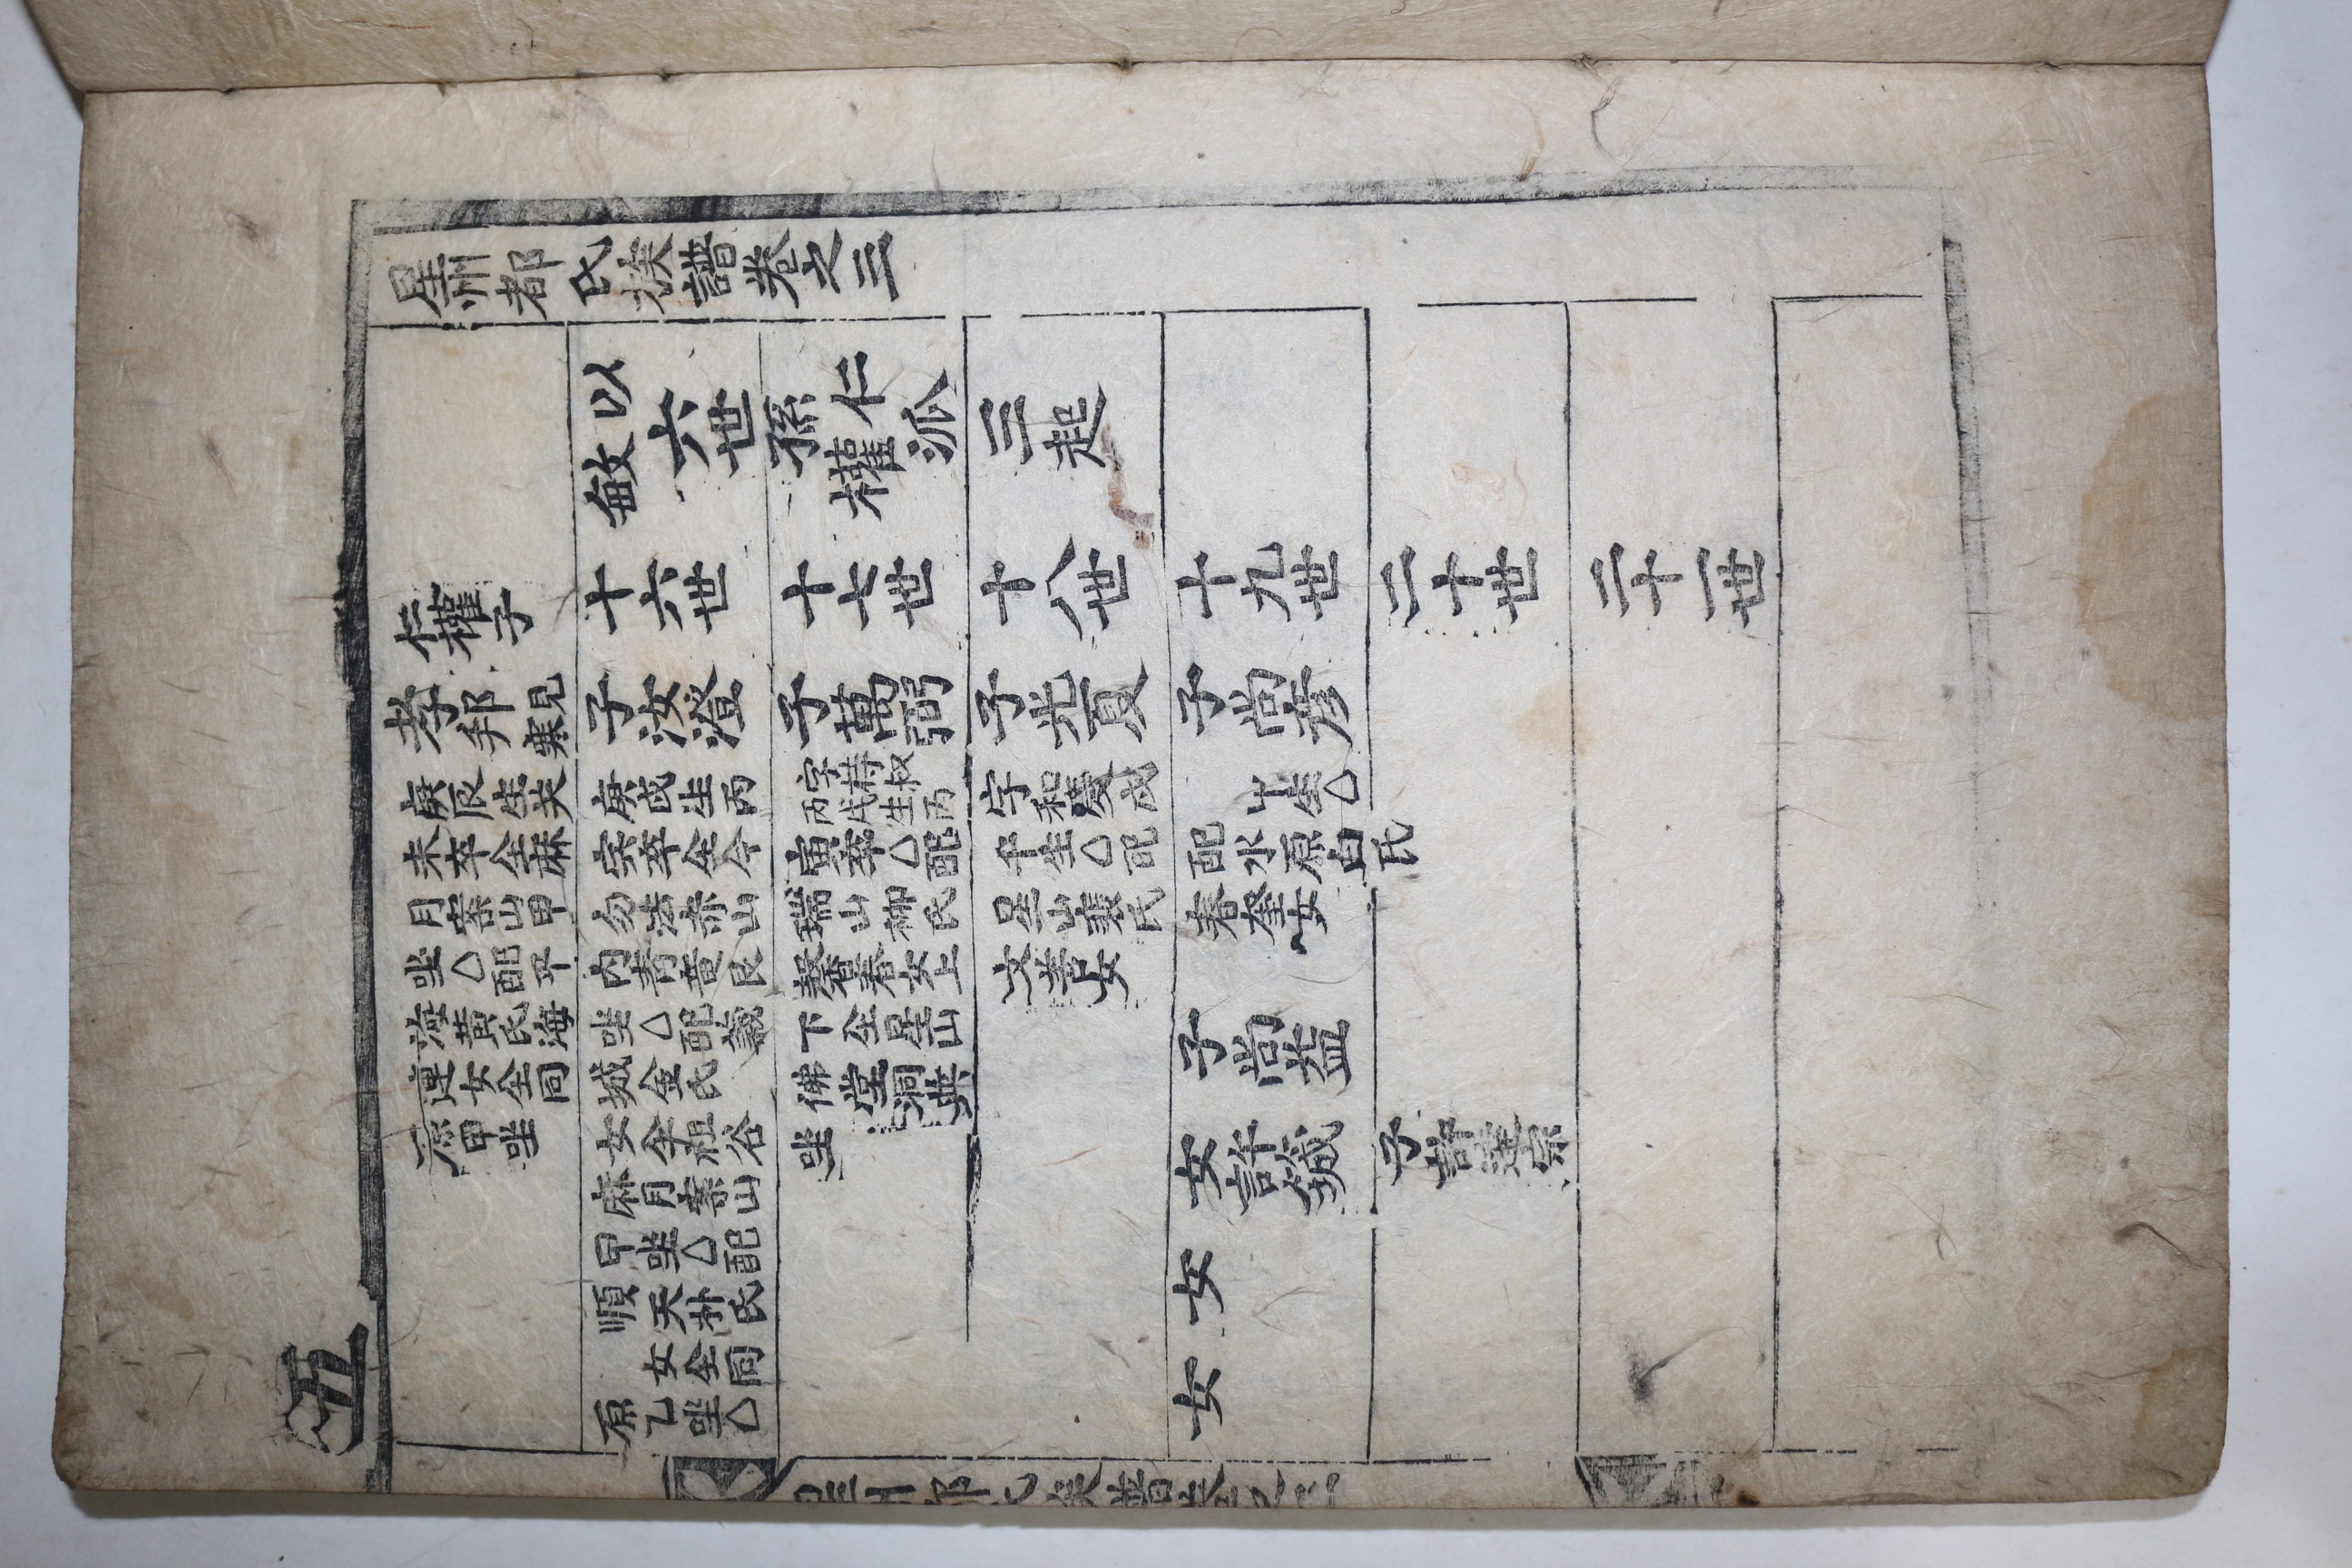 星州都氏族譜卷之三
以敏六世孫仁權派三起
五
仁權子
孝邦見寒
庚辰生癸
未卒仝麻
月案山甲
坐△配平
海黃氏海
連女仝同
原甲坐
十六世
子汝澄
庚戌生丙
寅卒仝今
勿法赤山
内青竜艮
坐△配義
城金氏
女仝祖谷
麻月案山
甲坐△配
順天朴氏
女仝同
原乙坐△
十七世
子萬弼
字
叔
丙戌生丙
寅卒△配
瑞山柳氏
馨春女上
下仝星山
佛堂洞典
坐
十八世
子光夏
字和慶戌
午生△配
星山裵氏
文善女
十九世
子尚彦
生△
配水原白氏
春奎女
子尚益
女許箴
女
女
二十世
子許蓮宗
二十一世